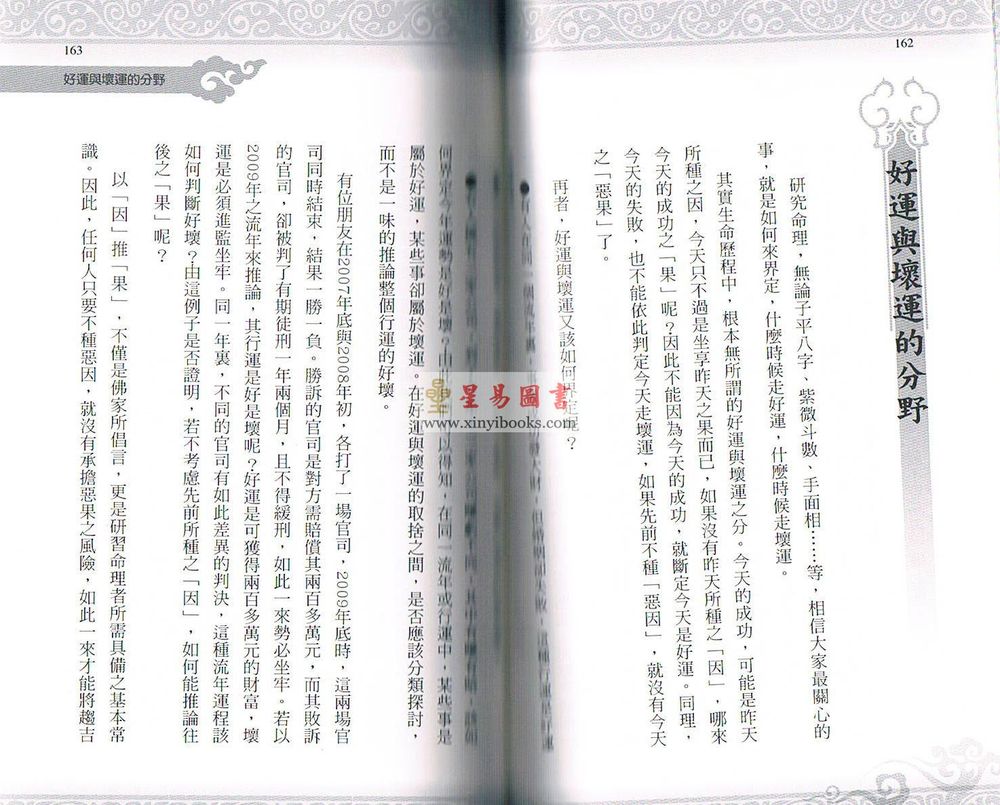 162
好運與壞運的分野
研究命理，無論子平八字、紫微斗數、手面相……等，相信大家最關心的
事，就是如何來界定，什麼時候走好運，什麼時候走壞運。
其實生命歷程中，根本無所謂的好運與壞運之分。今天的成功，可能是昨天
所種之因，今天只不過是坐享昨天之果而已，如果沒有昨天所種之「因」，哪來
今天的成功之「果」呢？因此不能因為今天的成功，就斷定今天是好運。同理，
今天的失敗，也不能依此判定今天走壞運，如果先前不種「惡因」，就沒有今天
之「惡果」了。
再者，好運與壞運又該如何界定呢？
●有人在同一個流年裏，發大財，但婚姻卻失敗，這種行運是好運
163
好運與壞運的分野
何界定今年運勢是好是壞？由此可以得知，在同一流年或行運中，某些事是
屬於好運，某些事卻屬於壞運。在好運與壞運的取捨之間，是否應該分類探討，
而不是一味的推論整個行運的好壞。
有位朋友在2007年底與2008年初，各打了一場官司，2009年底時，這兩場官
司同時結束，結果一勝一負。勝訴的官司是對方需賠償其兩百多萬元，而其敗訴
的官司，卻被判了有期徒刑一年兩個月，且不得緩刑，如此一來勢必坐牢。若以
2009年之流年來推論，其行運是好是壞呢？好運是可獲得兩百多萬元的財富，壞
運是必須進監坐牢。同一年裏，不同的官司有如此差異的判決，這種流年運程該
如何判斷好壞？由這例子是否證明，若不考慮先前所種之「因」，如何能推論往
後之「果」呢？
以「因」推「果」，不僅是佛家所倡言，更是研習命理者所需具備之基本常
識。因此，任何人只要不種惡因，就沒有承擔惡果之風險，如此一來才能將趨吉
星易圖書
www.xinyibooks.com